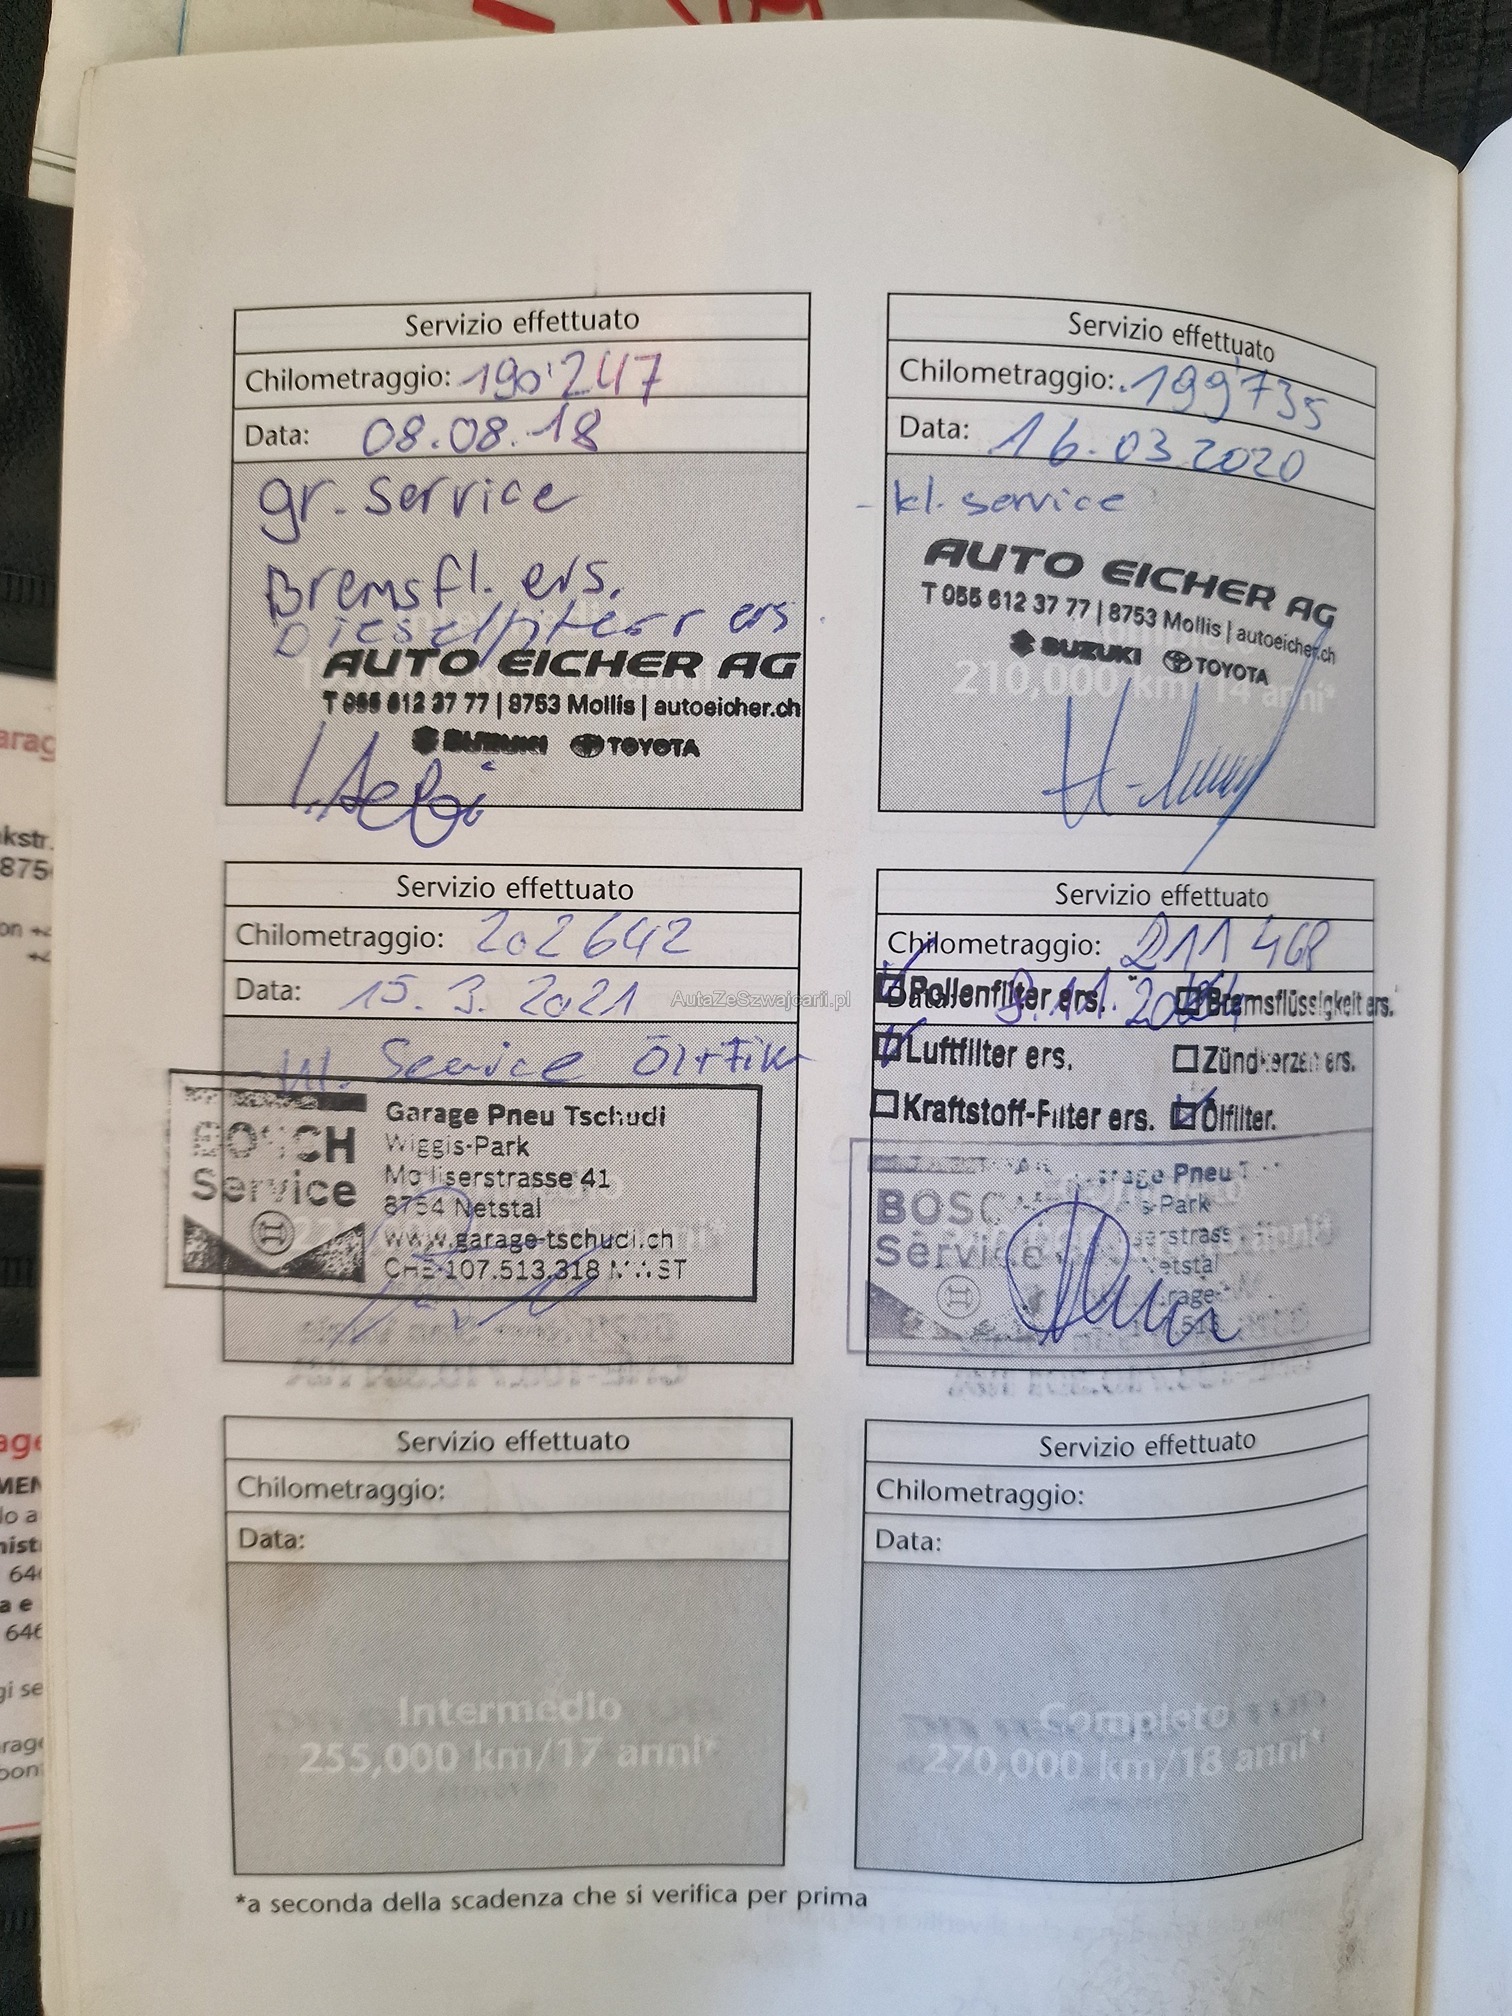 Servizio effettuato
Chilometraggio: 190'247
Data: 08.08.18
gr. Service
Bremsfl. ers.
Dieselfilter ers.
AUTO EICHER AG
T 055 612 37 77 | 8753 Mollis | autoeicher.ch
SUZUKI TOYOTA
Servizio effettuato
Chilometraggio: 199'735
Data: 16.03.2020
- kl. service
AUTO EICHER AG
T 055 612 37 77 | 8753 Mollis | autoeicher.ch
SUZUKI TOYOTA
210,000 km/14 anni*
Servizio effettuato
Chilometraggio: 202642
Data: 15.3.2021
kl. Service Öl+Filt
BOSCH
Service
Garage Pneu Tschudi
Wiggis-Park
Molliserstrasse 41
8754 Netstal
www.garage-tschudi.ch
CHE-107.513.318 MWST
Servizio effettuato
Chilometraggio: 211 468
Data:
Pollenfilter ers. Bremsflüssigkeit ers.
Luftfilter ers. Zündkerzen ers.
Kraftstoff-Filter ers. Ölfilter.
BOSC
Service
Pneu T
s-Park
serstrass
etstal
Servizio effettuato
Chilometraggio:
Data:
Intermedio
255,000 km/17 anni*
Servizio effettuato
Chilometraggio:
Data:
Completo
270,000 km/18 anni*
*a seconda della scadenza che si verifica per prima
AutaZeSzwajcarii.pl